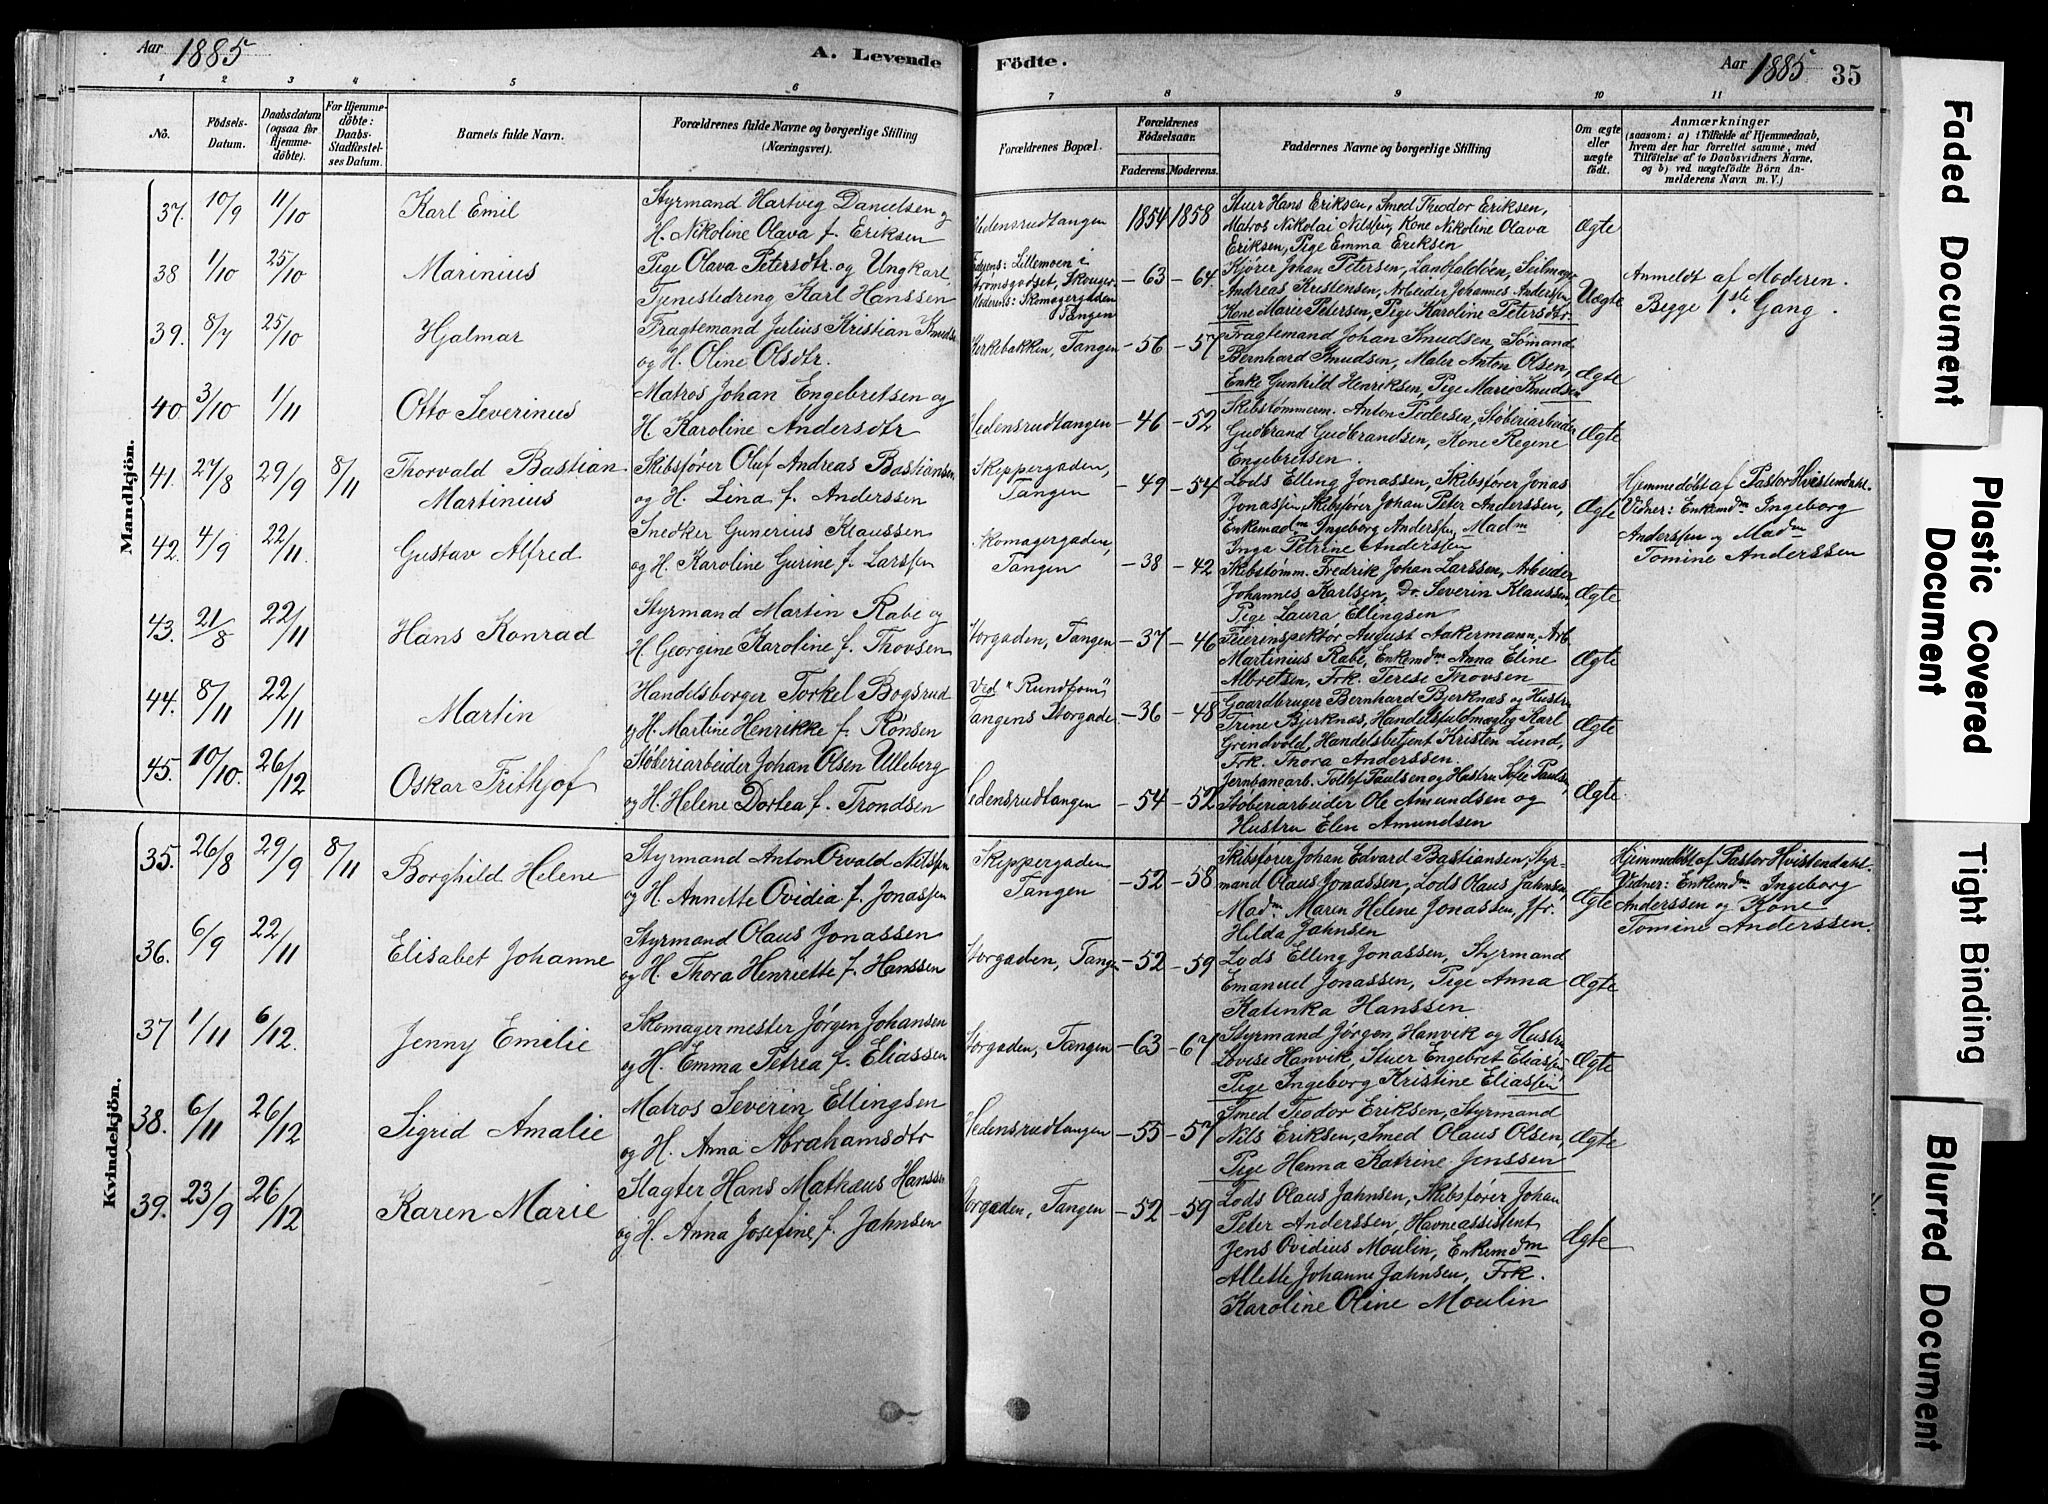 Aar 1885 A. Levende
1 2 3 4 5 6
No. Födsels-Datum. Daabsdatum (ogsaa for Hjemme-döbte). For Hjemme-döbte: Daabs-Stadfæstel-ses Datum. Barnets fulde Navn. Forældrenes fulde Navne og borgerlige Stilling (Næringsvei).
Mandkjön.
37. 10/9 11/10 Karl Emil Styrmand Hartvig Danielsen og
H. Nikoline Olava f. Eriksen
38 1/10 25/10 Marinius Pige Olava Petersdtr. og Ungkarl,
Tjenestedreng Karl Hanssen
39. 8/7 25/10 Hjalmar Fragtemand Julius Kristian Knudsen
og H. Oline Olsdtr.
40. 3/10 1/11 Otto Severinus Matros Johan Engebretsen og
H. Karoline Andersdtr
41. 27/8 29/9 8/11 Thorvald Bastian Skibsfører Oluf Andreas Bastiansen
Martinius og H. Lina f. Anderssen
42. 4/9 22/11 Gustav Alfred Snedker Gunerius Klaussen
og H. Karoline Gurine f. Larssen
43. 21/8 22/11 Hans Konrad Styrmand Martin Rabe og
H. Georgine Karoline f. Thovsen
44. 8/11 22/11 Martin Handelsborger Torkel Bogsrud
og H. Martine Henrikke f. Rønsen
45. 10/10. 26/12 Oskar Frithjof Støberiarbeider Johan Olsen Ulleberg
og H. Helene Dortea f. Trondsen
Kvindekjön.
35. 26/8 29/9 8/11 Borghild Helene Styrmand Anton Osvald Nilssen
og H. Annette Ovidia f. Jonassen
36. 6/9 22/11 Elisabet Johanne Styrmand Olaus Jonassen
og H. Thora Henriette f. Hanssen
37 1/11 6/12. Jenny Emilie Skomagermester Jørgen Johansen
og H. Emma Petrea f. Eliassen
38. 6/11 26/12 Sigrid Amalie Matros Severin Ellingsen
og H. Anna Abrahamsdtr
39. 23/9 26/12 Karen Marie Slagter Hans Mathæus Hanssen
og H. Anna Josefine f. Jahnsen
Födte. Aar 1885 35
7 8 9 10 11
Forældrenes Bopæl. Forældrenes Födselsaar. Faderens. Moderens. Faddernes Navne og borgerlige Stilling Om ægte eller uægte födt. Anmærkninger
(saasom: a) i Tilfælde af Hjemmedaab,
hvem der har forrettet samme, med
Tilföielse af to Daabsvidners Navne,
og b) ved uægtefödte Börn An-
melderens Navn m. V.)
Hedensrudtangen 1854 1858 Stuer Hans Eriksen, Smed Theodor Eriksen,
Matros Nikolai Nilssen, Kone Nikoline Olava
Eriksen, Pige Emma Eriksen Ægte
Faderens: Lillemoen i
Strømsgodset, Skouger
Moderens: Skomagergaden
Tangen -63 -64 Kjører Johan Petersen, Landfaldøen, Seilmager
Andreas Kristensen, Arbeider Johannes Anderssen,
Kone Marie Petersen, Pige Karoline Petersdtr Uægte Anmeldt af Moderen.
Begge 1ste Gang.
Kirkebakken, Tangen -56 -57 Fragtemand Johan Knudsen, Sømand
Bernhard Knudsen, Maler Anton Olsen,
Enke Gunhild Henriksen, Pige Marie Knudsen Ægte
Hedensrudtangen -46 -52 Skibstømmerm. Anton Pedersen, Støberiarbeider
Gudbrand Gudbrandsen, Kone Regine
Engebretsen. Ægte
Skippergaden,
Tangen -49 -54 Lods Elling Jonassen, Skibsfører Jonas
Jonassen, Skibsfører Johan Peter Anderssen,
Enkemadm Ingeborg Anderssen, Madm
Inga Petrine Anderssen Ægte Hjemmedøbt af Pastor Hvistendahl.
Vidner: Enkemdm Ingeborg
Anderssen og Madm
Tomine Anderssen
Skomagergaden,
Tangen -38 -42 Skibstømm. Fredrik Johan Larssen, Arbeider
Johannes Karlsen, Do. Severin Klaussen,
Pige Laura Ellingsen Ægte
Storgaden, Tangen -37 -46 Feierinspektør August Aakermann, Arb.
Martinius Rabe, Enkemdm Anna Eline
Albretsen, Frk. Terese Thovsen Ægte
Ved "Rundtom",
Tangens Storgade -36 -48 Gaardbruger Bernhard Bjerknæs og Hustru
Trine Bjerknæs, Handelsfuldmægtig Karl
Grendvold, Handelsbetjent Kristen Lund,
Frk. Thora Anderssen. Ægte
Hedensrudtangen -54 -52 Jernbanearb. Tollef Paulsen og Hustru Sofie Paulsen,
Støberiarbeider Ole Amundsen og
Hustru Elen Amundsen Ægte
Skippergaden
Tangen -52 -58 Skibsfører Johan Edvard Bastiansen, Styr-
mand Olaus Jonassen, Lods Olaus Jahnsen,
Madm Maren Helene Jonassen, Jfr.
Hilda Jahnsen Ægte Hjemmedøbt af Pastor Hvistendahl.
Vidner: Enkemdm Ingeborg
Anderssen og Kone
Tomine Anderssen.
Storgaden, Tangen -52 -59 Lods Elling Jonassen, Styrmand
Emanuel Jonassen, Pige Anna
Katinka Hanssen Ægte
Storgaden, Tangen -63 -67 Styrmand Jørgen Hanvik og Hustru
Lovise Hanvik, Stuer Engebret Eliassen
Pige Ingeborg Kristine Eliassen Ægte
Hedensrudtangen -55 -57 Smed Teodor Eriksen, Styrmand
Nils Eriksen, Smed Olaus Olsen,
Pige Hanna Katrine Jenssen Ægte
Storgaden, Tangen -52 -59 Lods Olaus Jahnsen, Skibsfører Johan
Peter Anderssen, Havneassistent
Jens Ovidius Moulin, Enkemdm
Allette Johanne Jahnsen, Frk.
Karoline Oline Moulin Ægte
Faded Document
Plastic Covered
Document
Tight Binding
Blurred Document